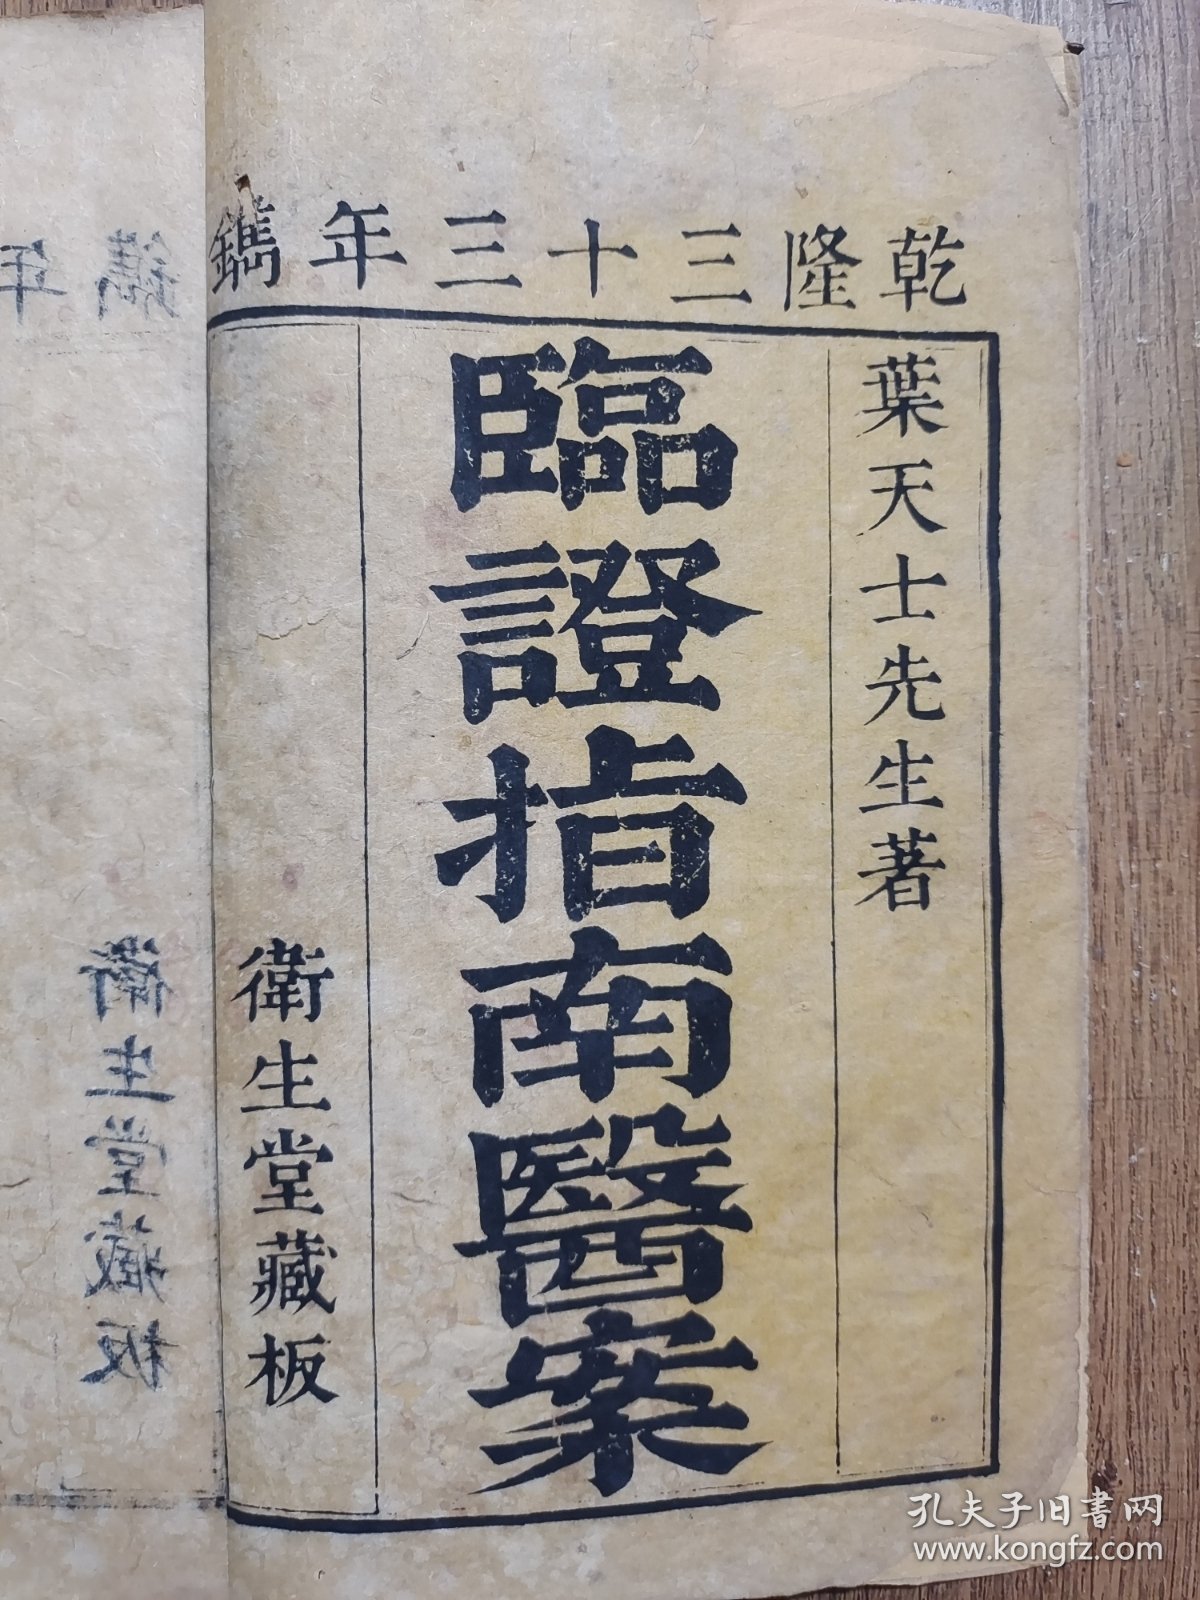 乾隆三十三年鐫
葉天士先生著
臨證指南醫案
衛生堂藏板
鐫年
衛生堂藏板
孔夫子旧書网
www.kongfz.com